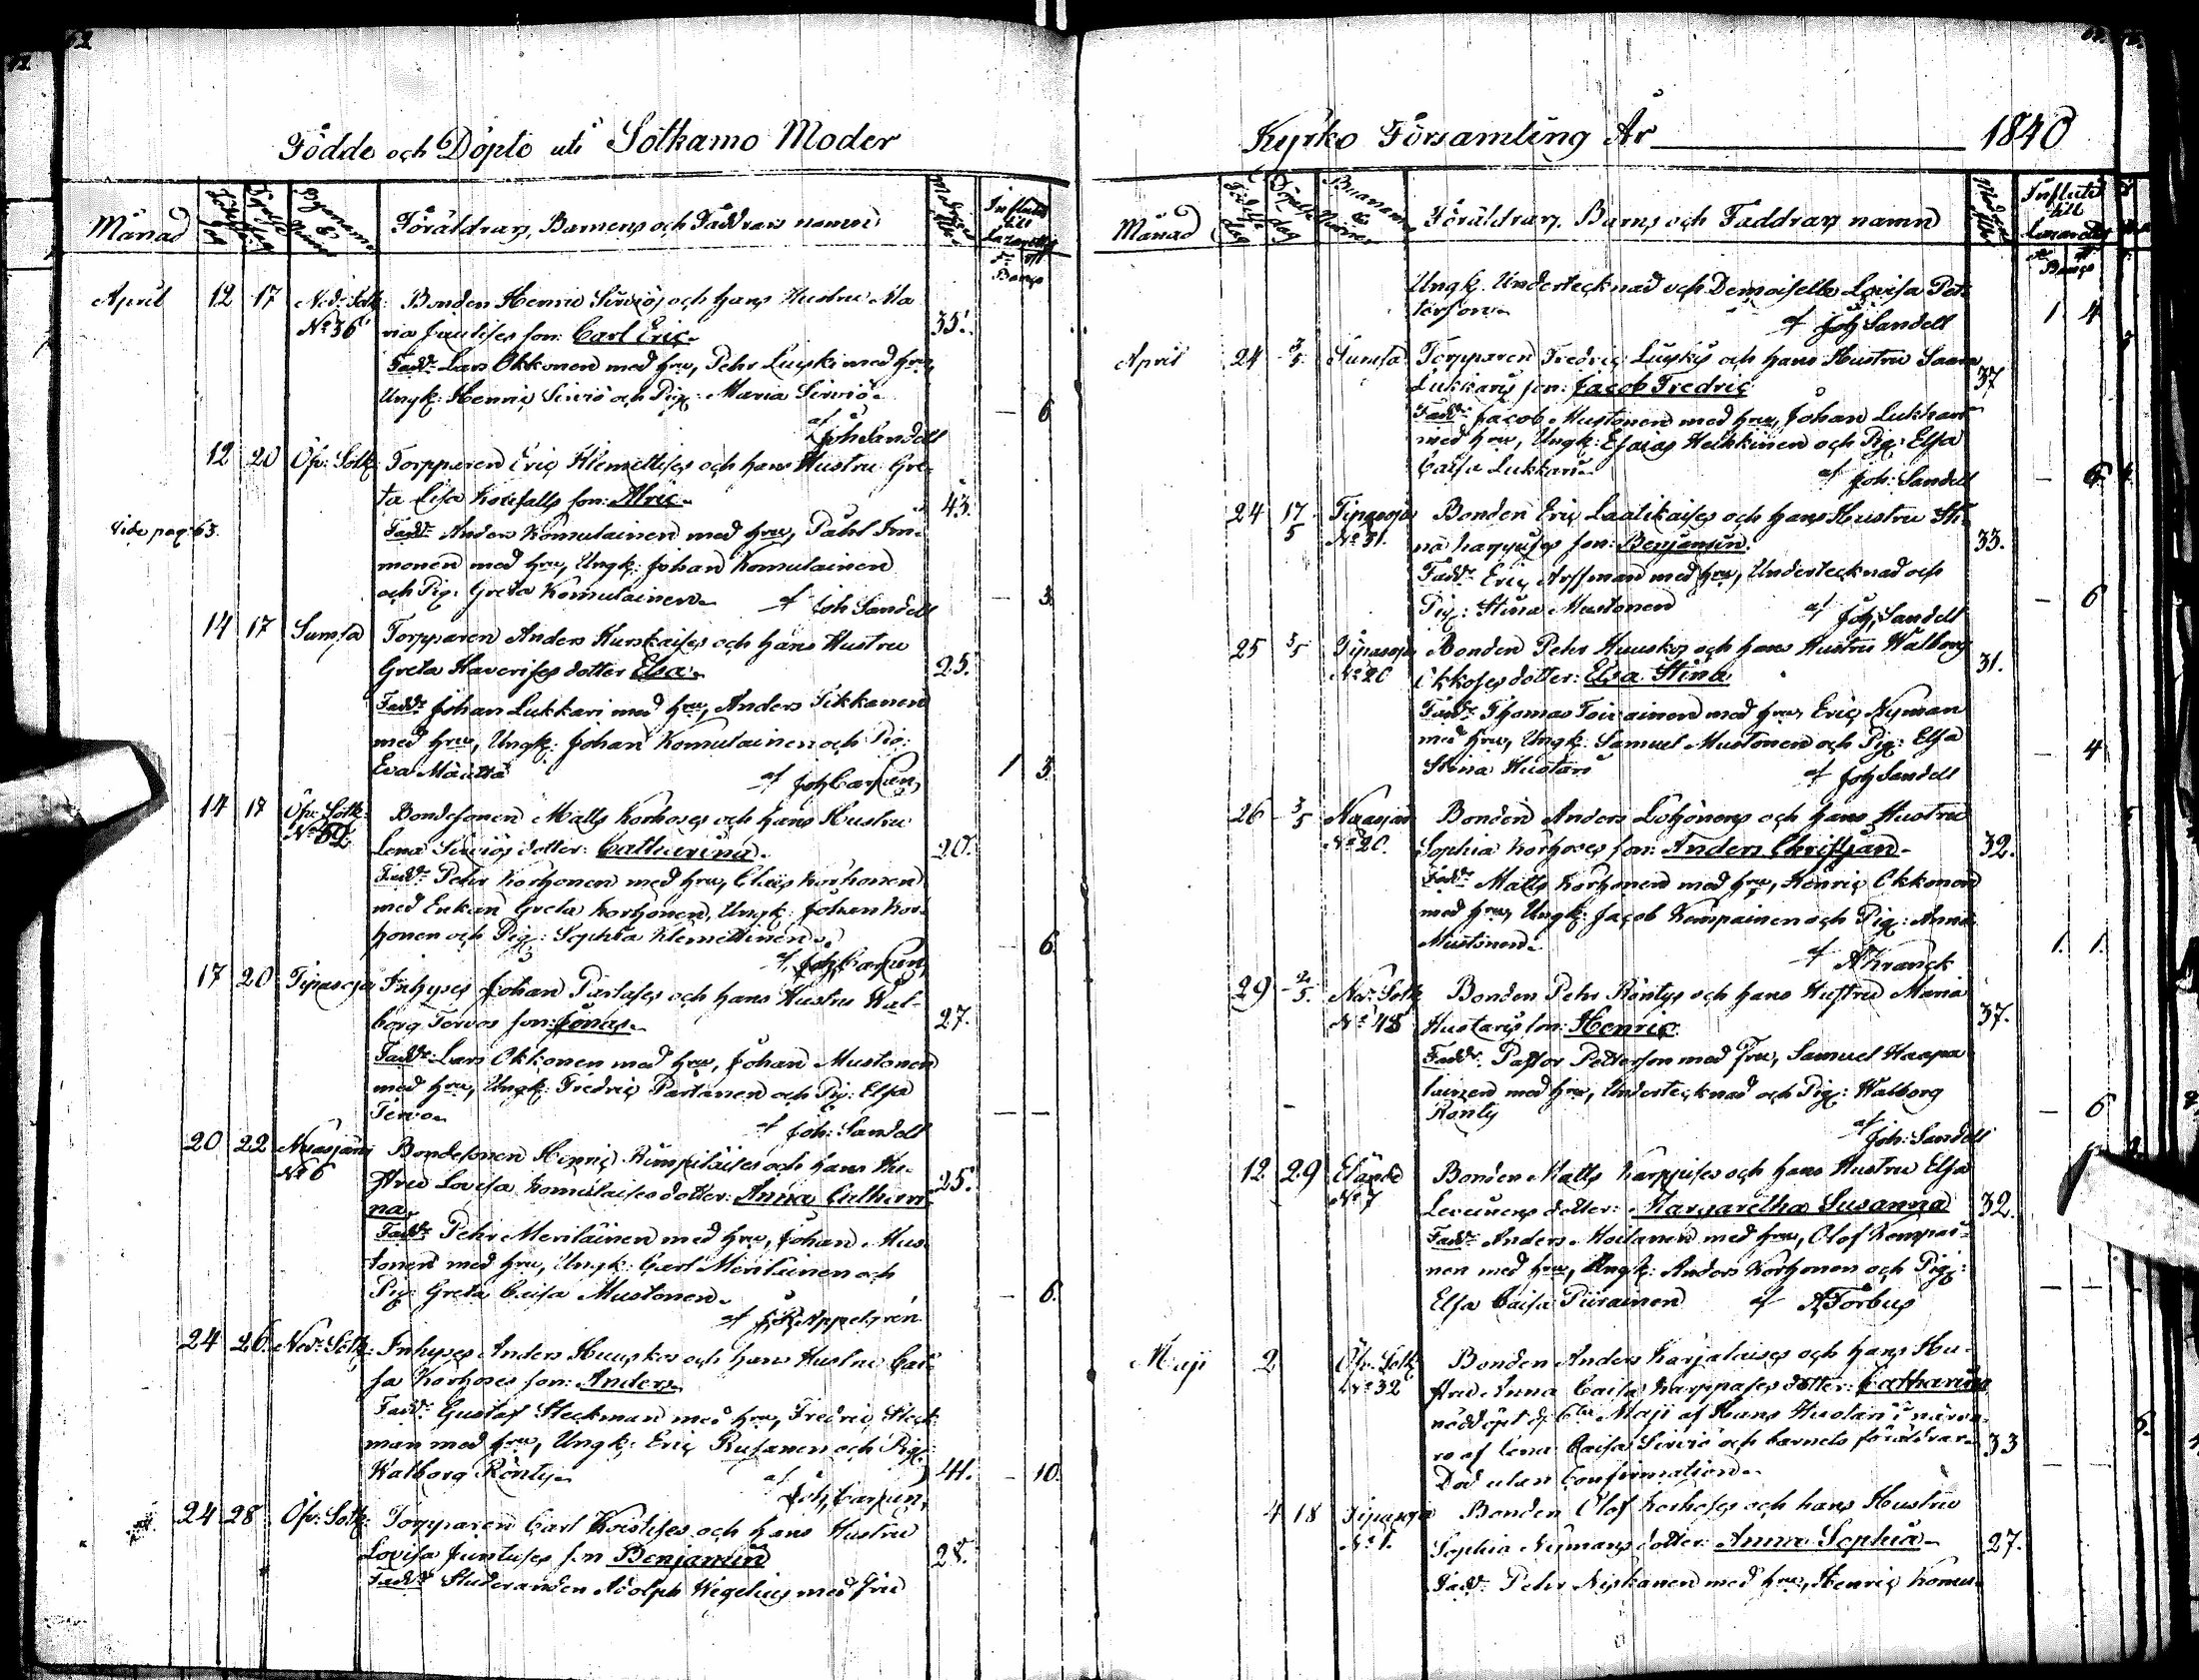 Födde och Döpte uti Sotkamo Moder
Månad
Födelse dag
Byanamn & Numer
Föräldrars, Barnens och Faddrars namn
Influtit till Lazarettet
Banco
April 12 17 Ned: Sotk: Bonden Henric Sirviös och hans Hustru Ma
No 36 ria Juntises son: Carl Eric 35.
Fadd: Lars Okkonen med hru, Pehr Luuski med hru,
Ungk: Henric Sirviö och Pig: Maria Sirviö.
— 6
af Joh Sandell
12 20 Öfv: Sotk: Torpparen Eric Klemettises och hans Hustru Gre-
ta Lisa son: Alric 43.
Vide pag: 63.
Fadd: Anders Komulainen med hru, Påhl Im-
monen med hru, Ungk: Johan Komulainen
och Pig: Greta Komulainen af Joh Sandell — 3.
14 17 Sumsa Torpparen Anders Kurkaises och hans Hustru
Greta Haverises dotter Elsa 25.
Fadd: Johan Lukkari med hru, Anders Tikkanen
med hru, Ungk: Johan Komulainen och Pig:
Eva Määttä af Joh 1 3.
14 17 Öfv: Sotk: Bondesonen Matts Korhoses och hans Hustru
No 52
Lena Sirviös dotter: Catharina 20.
Fadd: Pehr Korhonen med hru, Claes Korhonen
med Enkan Greta Korhonen, Ungk: Johan Kor-
honen och Pig: Sophia Klemettinen. — 6.
17 20 Tipasoja Inhyses Johan Partases och hans Hustru Wal-
borg Tervos son: Jonas 27.
Fadd: Lars Okkonen med hru, Johan Mustonen
med hru, Ungk: Fredric Partanen och Pig: Elsa
Tervo — —
af Joh: Sandell
20 22 Nuasjärvi Bondesonen Henric Rimpiläises och hans Hu-
No 6
stru Lovisa Komulaises dotter: Anna Cathari- 25.
na
Fadd: Pehr Meriläinen med hru, Johan Mus-
tonen med hru, Ungk: Carl Meriläinen och
Pig: Greta Caisa Mustonen — 6.
af Appelgren
24 26 Ned: Sotk: Inhyses Anders Huuskos och hans Hustru Cai-
sa Korhoses son: Anders
Fadd: Gustaf Steckman med hru, Fredric Steck-
man med hru, Ungk: Eric Rusanen och Pig:
Walborg Rönty 41. — 10.
24 28 Öfv: Sotk: Torpparen Carl Koistises och hans Hustru
Lovisa Juntuses son Benjamin 28.
Fadd: Studeranden Adolph Wegelius med fru
Kyrko Församling År 1840
Månad
Dag
Byanamn & Numer
Föräldrars, Barns och Faddrars namn
Influtit till Lazarettet
Banco
Ungk: Undertecknad och Demoiselle Lovisa Pet-
terson 1 4
af Joh Sandell
April 24 3/5 Sumsa Torpparen Fredric Luuskis och hans Hustru Saara
Lukkaris son: Jacob Fredric 37
Fadd: Jacob Mustonen med hru, Johan Lukkari
med hru, Ungk: Esaias Heikkinen och Pig: Elsa
Caisa Lukkari af Joh: Sandell — 6
24 17/5 Tipasoja Bonden Eric Laatikaises och hans Hustru Sti-
No 31. na Karppises son: Benjamin 33.
Fadd: Eric Arffman med hru, Undertecknad och
Pig: Stina Mustonen af Joh Sandell — 6
25 3/5 Tipasoja Bonden Pehr Huuskos och hans Hustru Walborg
No 20 Okkoses dotter: Elsa Stina 31.
Fadd: Thomas Toivainen med hru, Eric Nyman
med hru, Ungk: Samuel Mustonen och Pig: Elsa
Stina Hustari af Joh Sandell — 4
26 3/5 Nuasjärvi Bonden Anders Löhönens och hans Hustru
No 20. Sophia Korhoses son: Anders Christjan 32.
Fadd: Matts Korhonen med hru, Henric Okkonen
med hru, Ungk: Jacob Kempainen och Pig: Anna
Mustonen 1. 1.
af A Kranck
29 Ned: Sotk Bonden Pehr Röntys och hans Hustru Maria
No 48 Hustaris son: Henric 37.
Fadd: Pastor Petterson med Fru, Samuel Haapa
lainen med hru, Undertecknad och Pig: Walborg
Rönty — 6
af Joh: Sandell
12 29 Bonden Matts Karppises och hans Hustru Elsa
No 7 Leinonens dotter: Margaretha Susanna 32.
Fadd: Anders Moilanen med hru, Olof Kempai-
nen med hru, Ungk: Anders Korhonen och Pig:
Elsa Caisa Piirainen af A Forbus — —
Maji 2 Öfv: Sotk Bonden Anders Karjalaises och hans Hu-
No 32 stru Anna Caisa Karppases dotter: Catharina
nöddöpt d 6te Maji af Hans Hustari i närva-
ro af Lena Caisa Sirviö och barnets föräldrar. 33
Död utan Confirmation — —
4 18 Tipasoja Bonden Olof Korhoses och hans Hustru
No 1. Sophia Nymans dotter: Anna Sophia 27.
Fadd: Pehr Niskanen med hru, Henric Komu-